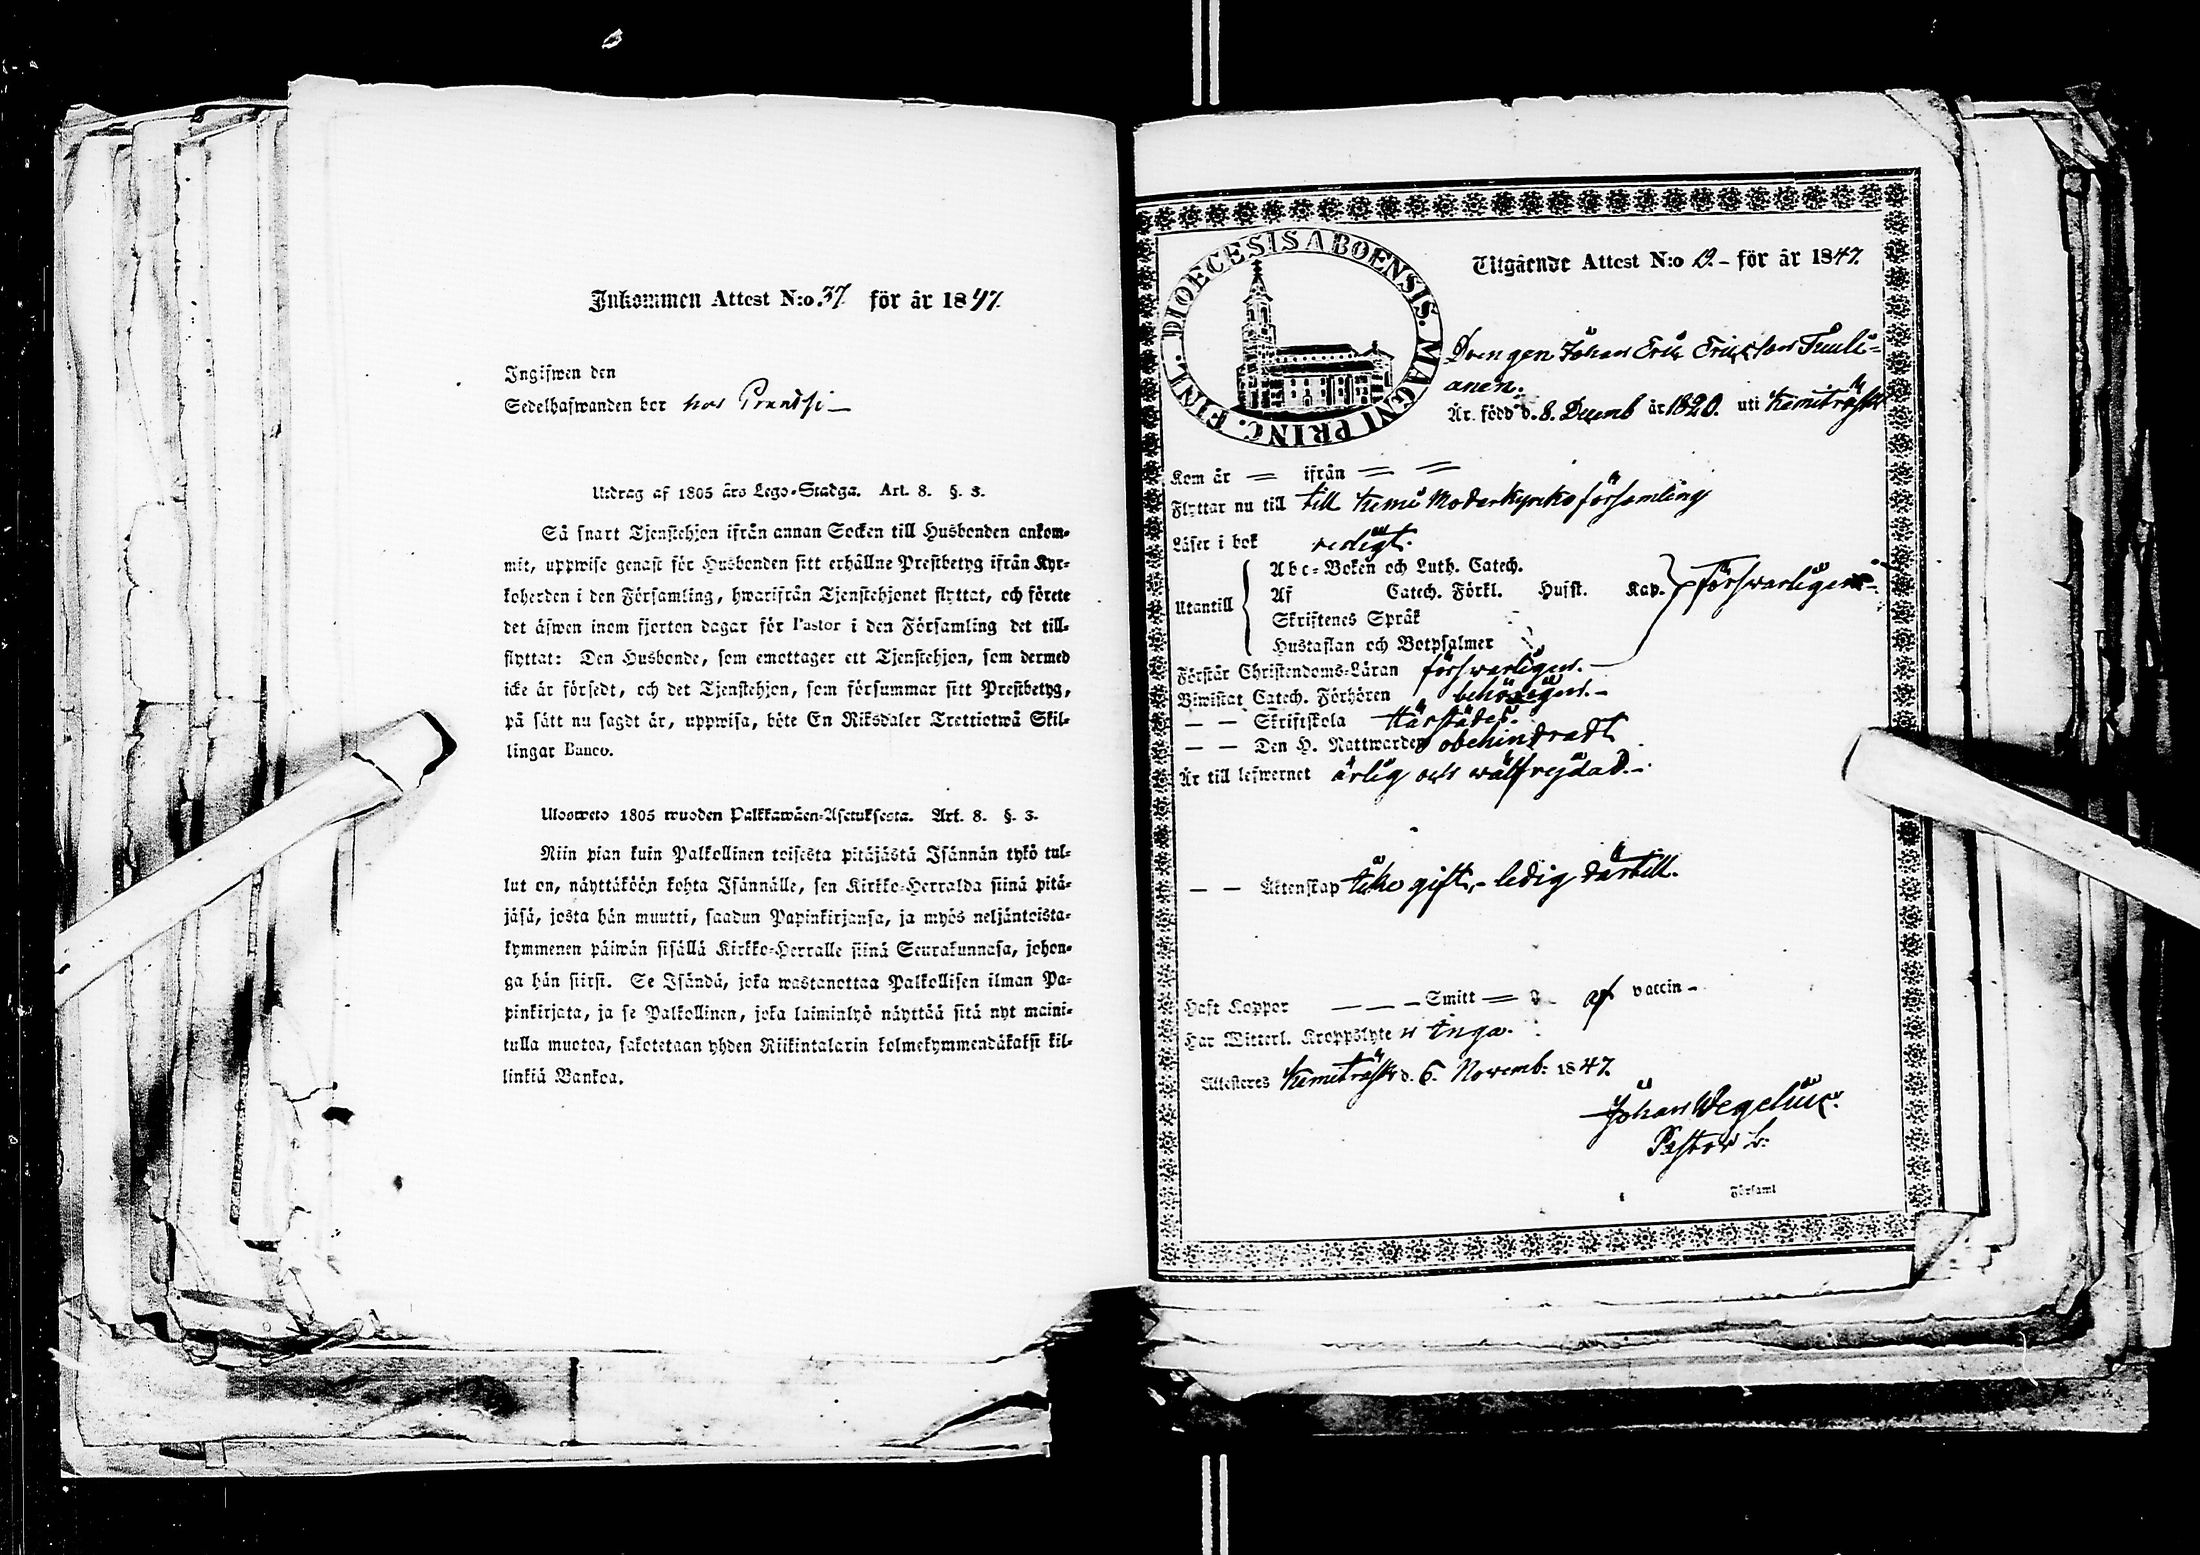 Inkommen Attest N:o 37. för år 1847.
Ingifwen den
Sedelhafwanden bor hos
Utdrag af 1805 års Lego-Stadga. Art. 8. §. 3.
Så snart Tjenstehjon ifrån annan Socken till Husbonden ankom-
mit, uppwise genast för Husbonden sitt erhållne Prestbetyg ifrån Kyr-
koherden i den Församling, hwarifrån Tjenstehjonet flyttat, och förete
det äfwen inom fjorton dagar för Pastor i den Församling det till-
flyttat: Den Husbonde, som emottager ett Tjenstehjon, som dermed
icke är försedt, och det Tjenstehjon, som försummar sitt Prestbetyg,
på sätt nu sagdt är, uppwisa, böte En Riksdaler Trettiotwå Skil-
lingar Banco.
Ulosweto 1805 wuoden Palkkawäen-Asetuksesta. Art. 8. §. 3.
Niin pian kuin Palkollinen toisesta pitäjästä Isännän tykö tul-
lut on, näyttäköön kohta Isännälle, sen Kirkko-Herralda siinä pitä-
jäsä, josta hän muutti, saadun Papinkirjansa, ja myös neljäntoista-
kymmenen päiwän sisällä Kirkko-Herralle siinä Seurakunnasa, johon-
ga hän siirsi. Se Isändä, joka wastanottaa Palkollisen ilman Pa-
pinkirjata, ja se Palkollinen, joka laiminlyö näyttää sitä nyt maini-
tulla muotoa, sakotetaan yhden Riikintalarin kolmekymmendäkaksi kil-
linkiä Bankoa.
DIOECESIS ABOENSIS. MAGNI PRINC. FINL.
Utgående Attest N:o 19. för år 1847.
Drengen Johan Eric Ericsson Tuuli-
anen.
Är född d. 8. Decemb år 1820. uti Kemiträsk
Kom år = ifrån = =
Flyttar nu till till Kemi Moderkyrko församling
Läser i bok redigt.
Utantill
Abc-Boken och Luth. Catech.
Af Catech. Förkl. Husst. Kap. försvarligen
Skriftenes Språk
Hustaflan och Botpsalmer
Förstår Christendoms-Läran försvarligen.
Biwistat Catech. Förhören behörigen.
— — Skriftskola härstädes.
— — Den H. Nattwarden obehindradt
Är till lefwernet ärlig och wälfrejdad.
— — Äktenskap icke gift, - ledig därtill.
Haft Koppor — — — Smitt = af vaccin -
Har Witterl. Kroppslyte " Inga.
Attesteres Kemiträsk d. 6. Novemb. 1847.
Johan Wegelius.
Pastor L:
Församl